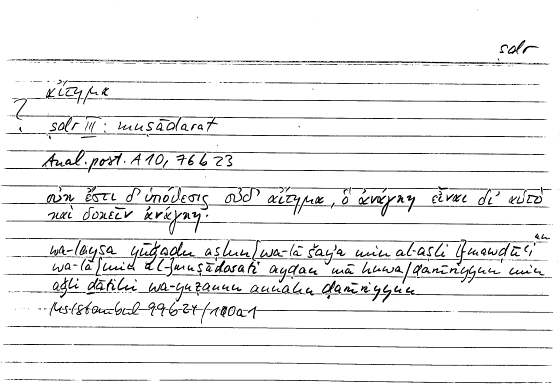 ṣdr
αἴτημα
?
ṣdr III: muṣādarat
Anal. post. A 10, 76 b 23
οὐκ ἔστι δ' ὑπόθεσις οὐδ' αἴτημα, ὃ ἀνάγκη εἶναι δι' αὑτὸ
καὶ δοκεῖν ἀνάγκη.
wa-laysa yūǧadu aṣlun [wa-lā šayʾa min al-aṣli l-]mawḍūʿi
wa-lā [min al-]muṣādarati ayḍan mā huwa ḍarūriyyun min
aǧli ḏātihi wa-yuẓannu annahu ḍarūriyyun